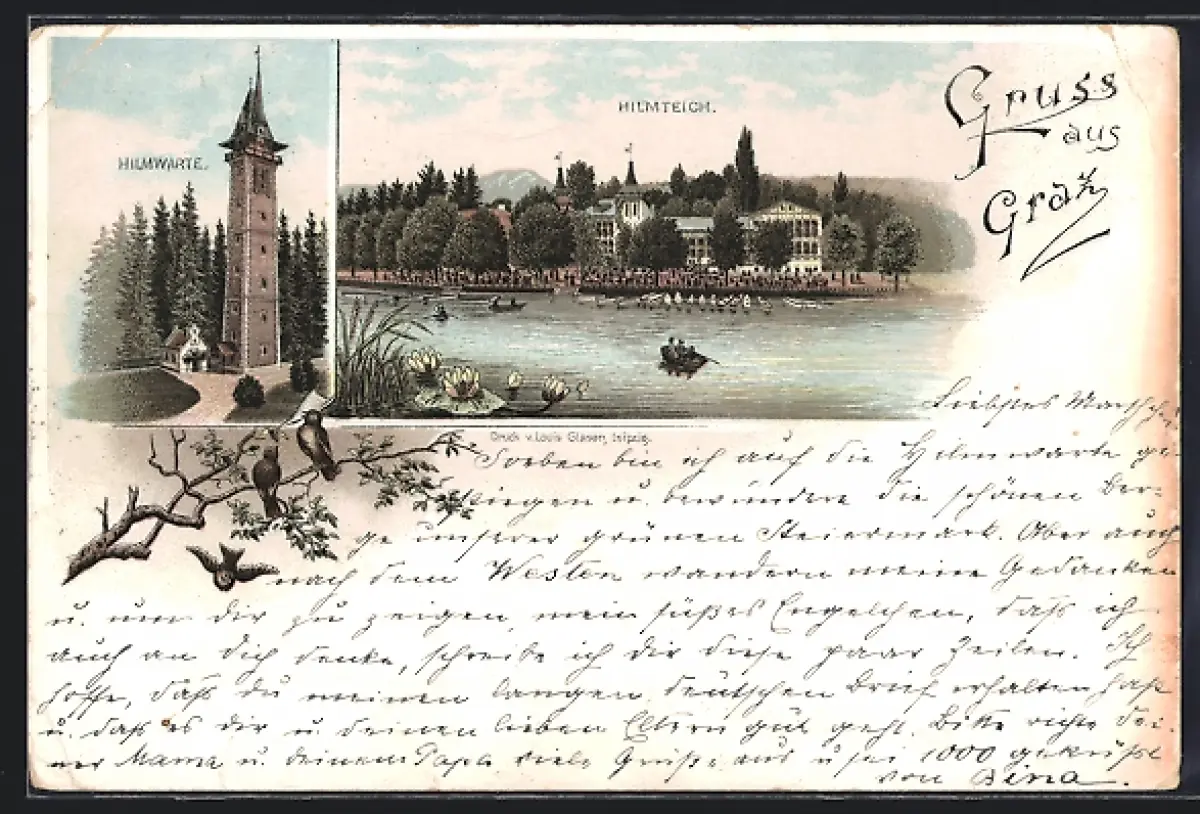 HILMWARTE.
HILMTEICH.
Gruss
aus
Graz
Druck v. Louis Glaser, Leipzig.
Liebstes
Soeben bin ich auf die Hilmwarte ge-
stiegen u. bewundere die schönen Ber-
ge unserer grünen Steiermark. Aber auch
nach dem Westen wandern meine Gedanken
u. um dir zu zeigen, mein süßes Engelchen, daß ich
auch an dich denke, schreibe ich dir diese paar Zeilen. Ich
hoffe, daß du meinen langen deutschen Brief erhalten hast
u. daß es dir u. deinen lieben Eltern gut geht. Bitte richte dei-
ner Mama u. deinem Papa viele Grüße aus u. sei 1000 geküßt
von Bina.